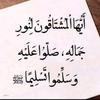 أَيُّهَا الْمُشْتَاقُونَ لِنُورِ
جَمَالِهِ، صَلُّوا عَلَيْهِ
وَسَلِّمُوا تَسْلِيمًا ﷺ